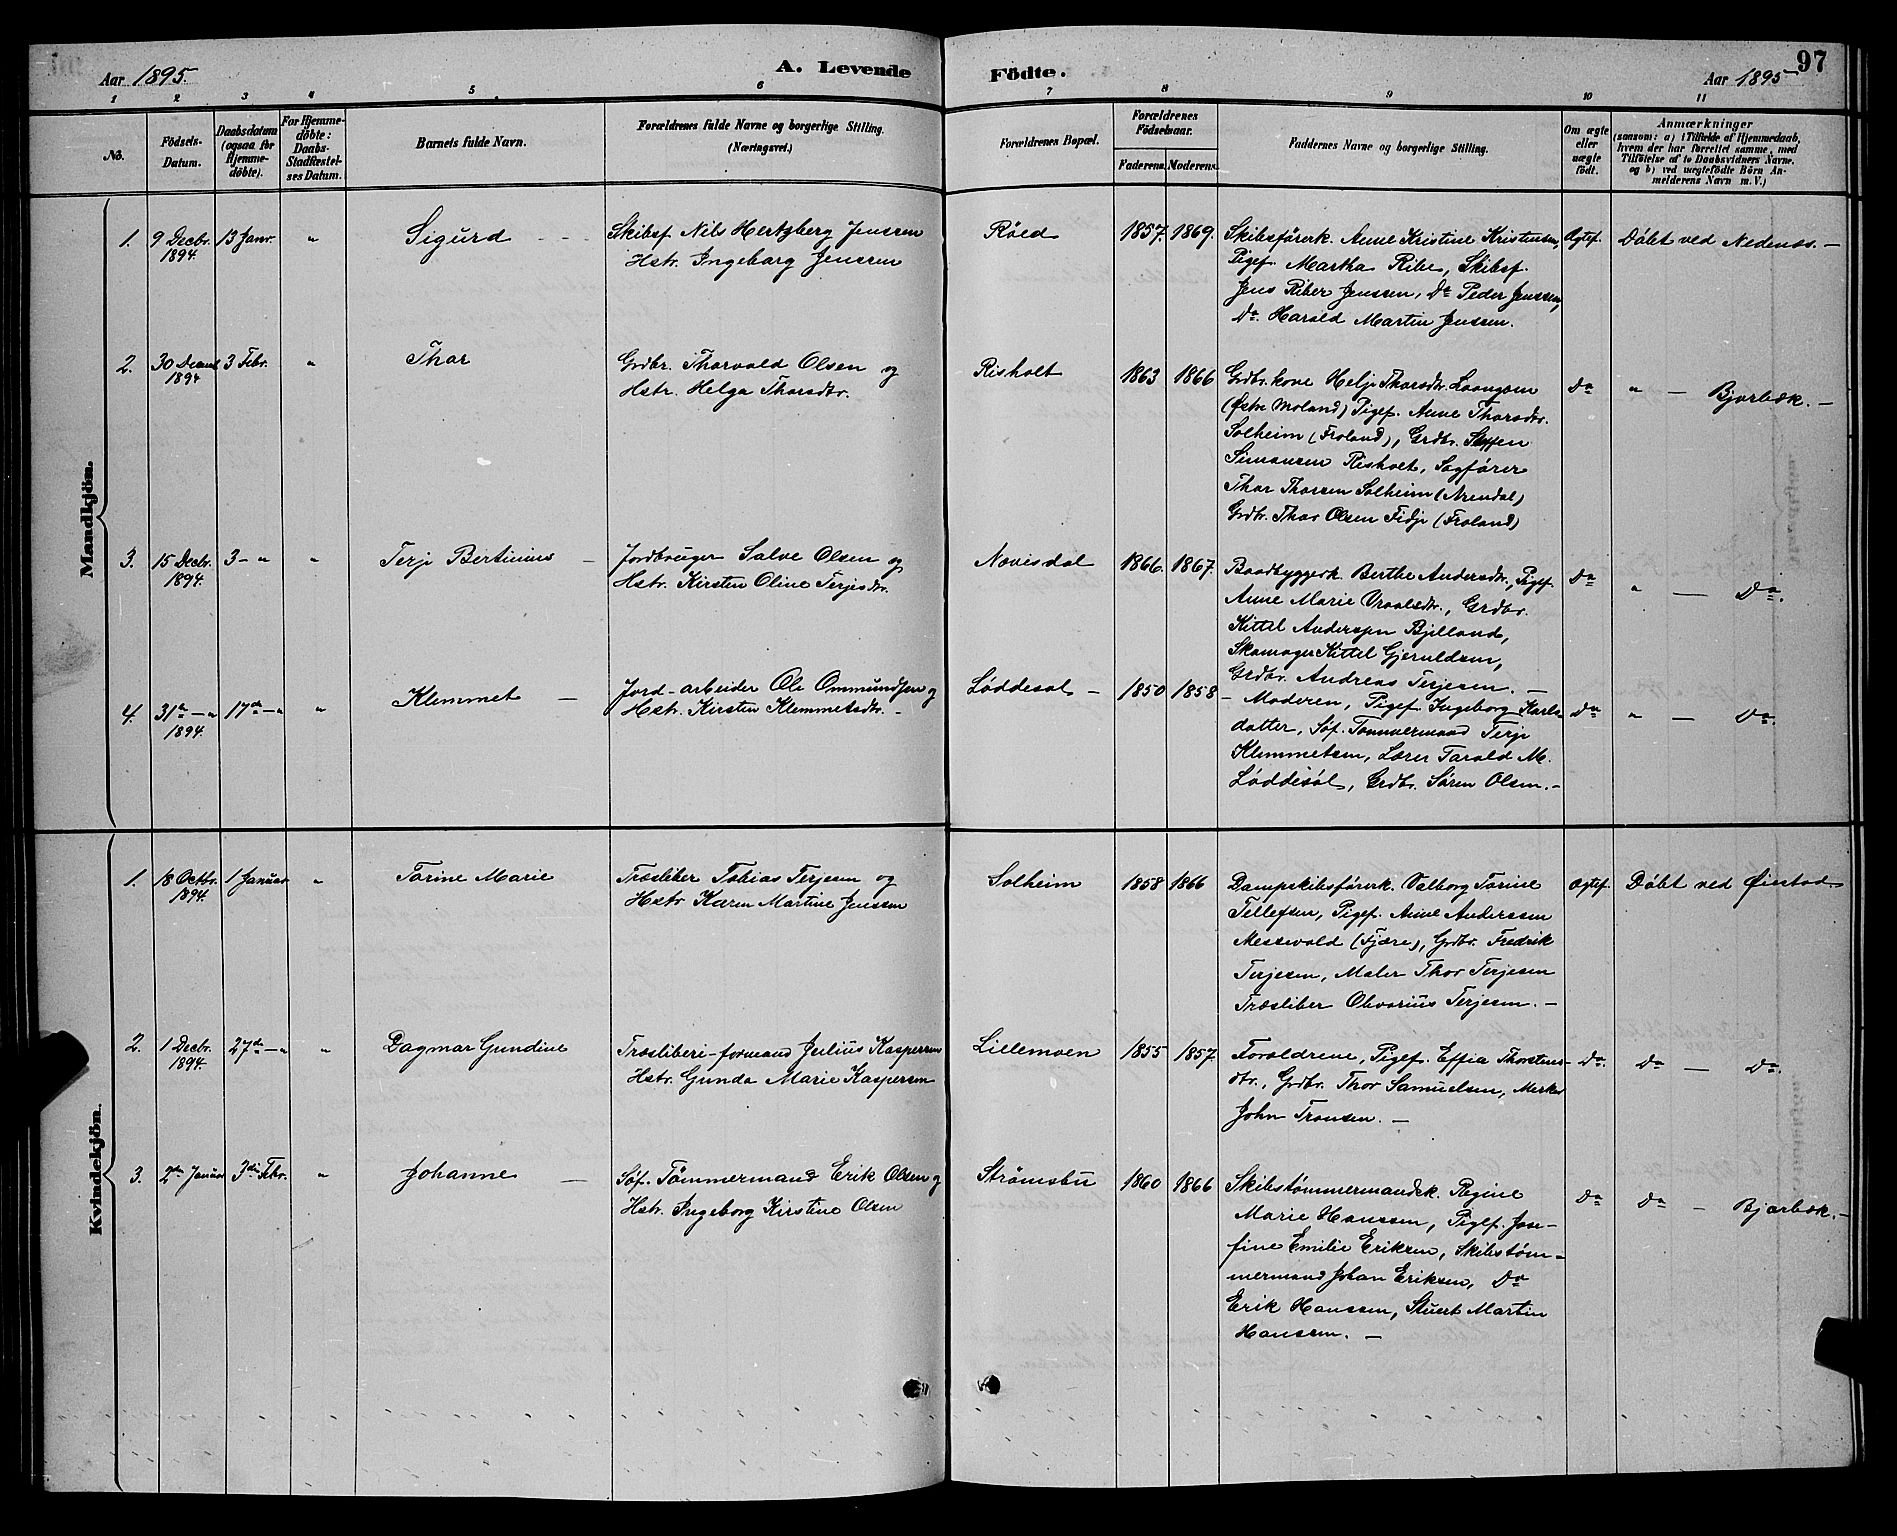 Aar 1895.
A. Levende
Födte.
Aar 1895
97
1 2 3 4 5 6 7 8 9 10 11
No.
Födsels-
Datum.
Daabsdatum
(ogsaa for
Hjemme-
döbte).
For Hjemme-
döbte:
Daabs-
Stadfæstel-
ses Datum.
Barnets fulde Navn.
Forældrenes fulde Navne og borgerlige Stilling.
(Næringsvei.)
Forældrenes Bopæl.
Forældrenes
Födselsaar.
Faderens. Moderens.
Faddernes Navne og borgerlige Stilling.
Om ægte
eller
uægte
födt.
Anmærkninger
(saasom: a) i Tilfælde af Hjemmedaab,
hvem der har forrettet samme, med
Tilföielse af to Daabsvidners Navne,
og b) ved uægtefödte Börn An-
melderens Navn m. V.)
Mandkjön.
1.
9 Decbr.
1894.
13 Janr.
"
Sigurd
Skibsf. Nils Hertzberg Jenssen
Hstr. Ingeborg Jenssen
Røed
1857. 1869.
Skibsførerk. Anne Kristine Kristensen,
Pigef. Martha Ribe, Skibsf.
Jens Riber Jenssen, Do Peder Jenssen,
Do. Harald Martin Jenssen.
Ægtef.
Døbt ved Nedenæs. –
2.
30 Decemb
1894
3 Febr.
"
Thor
Grdbr. Thorvald Olsen og
Hstr. Helga Thorsdtr.
Risholt
1863 1866
Grdbr.kone Helje Thorsdtr. Longom
(Østre Moland) Pigef. Anne Thorsdtr.
Solheim (Froland), Grdbr. Steffen
Simonsen Risholt, Sagfører
Thor Thorsen Solheim (Arendal)
Grdbr. Thor Olsen Fidje (Froland)
Do
" — Bjorbæk. –
3.
15 Decbr.
1894.
3 – "
"
Terje Bertinius –
Jordbruger Salve Olsen og
Hstr. Kirsten Oline Terjesdtr.
Nævisdal
1866. 1867.
Baadbyggerk. Berthe Andersdtr., Pigef.
Anne Marie Vraalsdtr., Grdbr.
Kittel Andersen Bjelland,
Skomager Kittel Gjeruldsen,
Grdbr. Andreas Terjesen. –
Do
" — Do.
4.
31te – "
1894.
17de – "
"
Klemmet –
Jord-arbeider Ole Ommundsen og
Hstr. Kirsten Klemmetsdtr. –
Løddesøl –
1850 1858
– Moderen, Pigef. Ingeborg Karls-
datter, Søf. Tømmermand Terje
Klemmetsen, Lærer Tarald M.
Løddesøl, Grdbr. Søren Olsen. –
Do
" — Do.
Kvindekjön.
1.
18 Octbr.
1894.
1 Januar
"
Torine Marie
Træsliber Tobias Terjesen og
Hstr Karen Martine Jenssen
Solheim
1858 1866
Dampskibsførerk. Valborg Torine
Tellefsen, Pigef. Anne Anderssen
Messevold (Fjære), Grdbr. Fredrik
Terjesen, Maler Thor Terjesen
Træsliber Olivarius Terjesen. –
Ægtef.
Døbt ved Øiestad
2.
1 Decbr.
1894.
27de – "
"
Dagmar Gundine
Træsliberi-formand Julius Kaspersen
Hstr. Gunda Marie Kaspersen
Lillemoen
1855 1857.
Forældrene, Pigef. Effia Thorstens-
dtr., Grdbr. Thor Samuelsen, Merker
John Tronsen. –
Do.
Do — Do.
3.
2den Januar
3die Febr.
"
Johanne –
Søf. Tømmermand Erik Olsen og
Hstr. Ingeborg Kirstine Olsen
Strømsbu
1860 1866
Skibstømmermandsk. Regine
Marie Hanssen, Pigef. Jose-
fine Emilie Eriksen, Skibstøm-
mermand Johan Eriksen, Do
Erik Hanssen, Stuert Martin
Hanssen. –
Do
Do – Bjorbæk. –